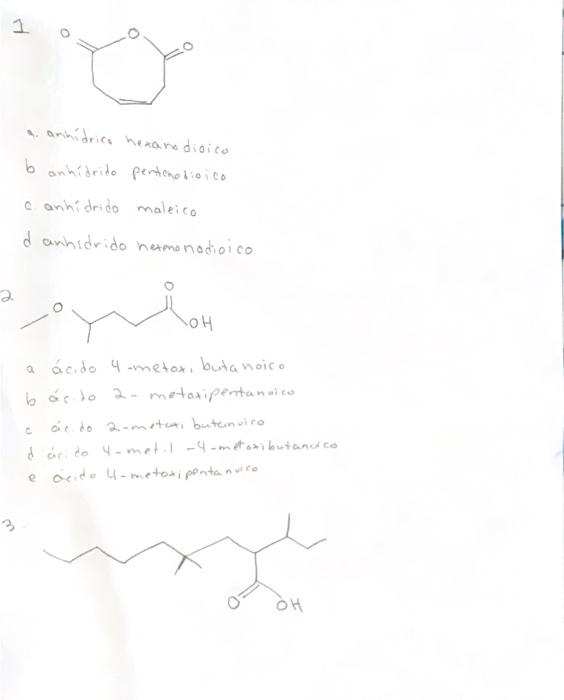 1
O O O
a. anhídrico hexanodioico
b anhídrido pentenodioico
c anhídrido maleico
d anhídrido hexenonodioico
2
O O
OH
a ácido 4-metoxi butanoico
b ácido 2- metoxipentanoico
c ácido 2-metoxi butanoico
d ácido 4-metil -4-metoxibutanoico
e ácido 4-metoxipentanoico
3.
O OH